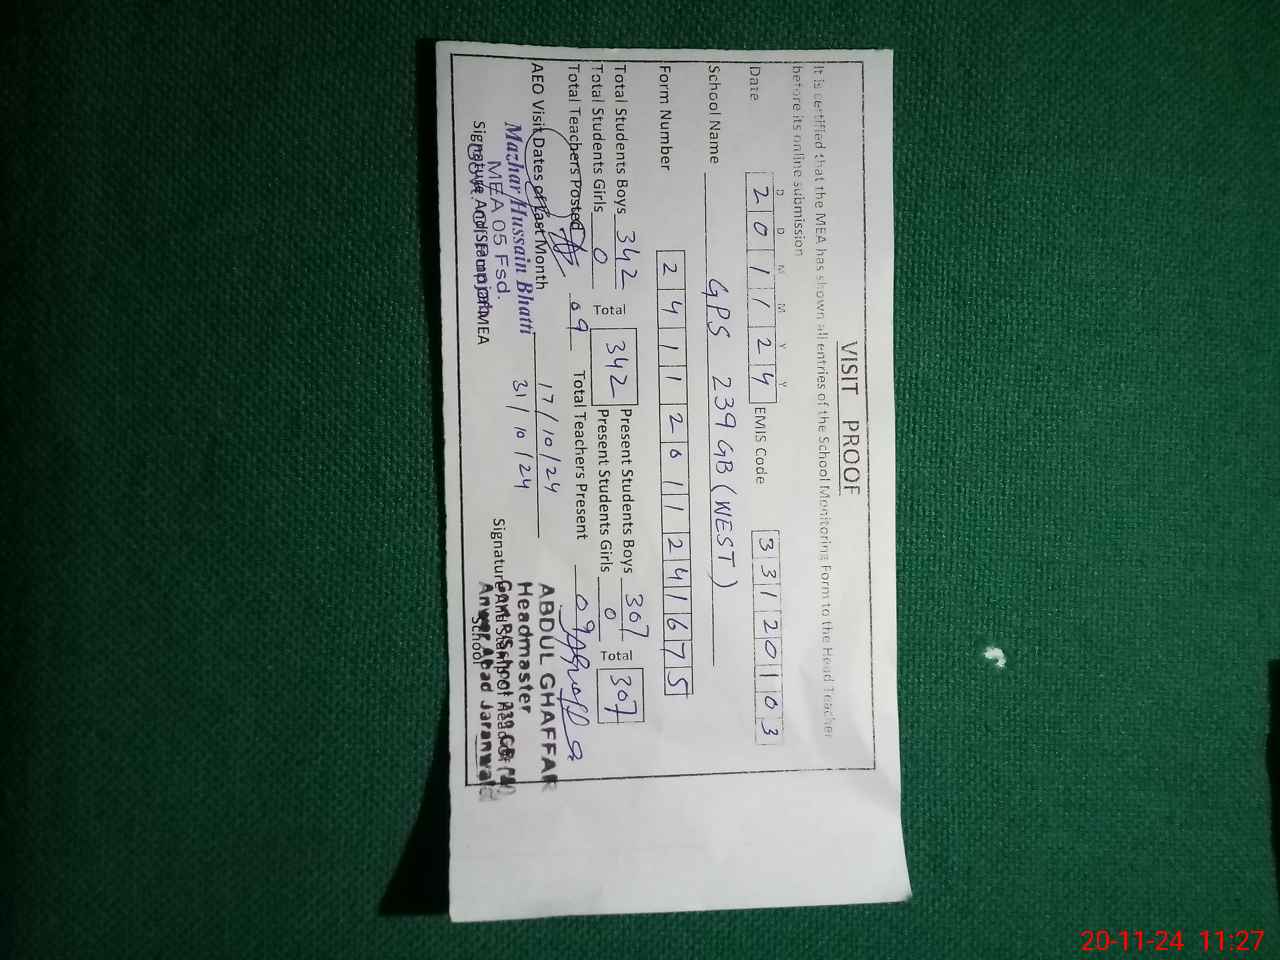 VISIT PROOF
It is certified that the MEA has shown all entries of the School Monitoring Form to the Head Teacher
before its online submission
D D M M Y Y
Date 2 0 1 1 2 4 EMIS Code 3 3 1 2 0 1 0 3
School Name GPS 239 GB (WEST)
Form Number 2 4 1 1 2 0 1 1 2 4 1 6 7 5
Total Students Boys 342 Total 342 Present Students Boys 307 Total 307
Total Students Girls 0 Present Students Girls 0
Total Teachers Posted 09 Total Teachers Present 09
AEO Visit Dates of Last Month 17/10/24
31/10/24
Mazhar Hussain Bhatti
MEA 05 Fsd.
Signature And Stamp of MEA
ABDUL GHAFFAR
Headmaster
Signature And Stamp of Head of
School
239 GB (W)
Jaranwala
20-11-24 11:27